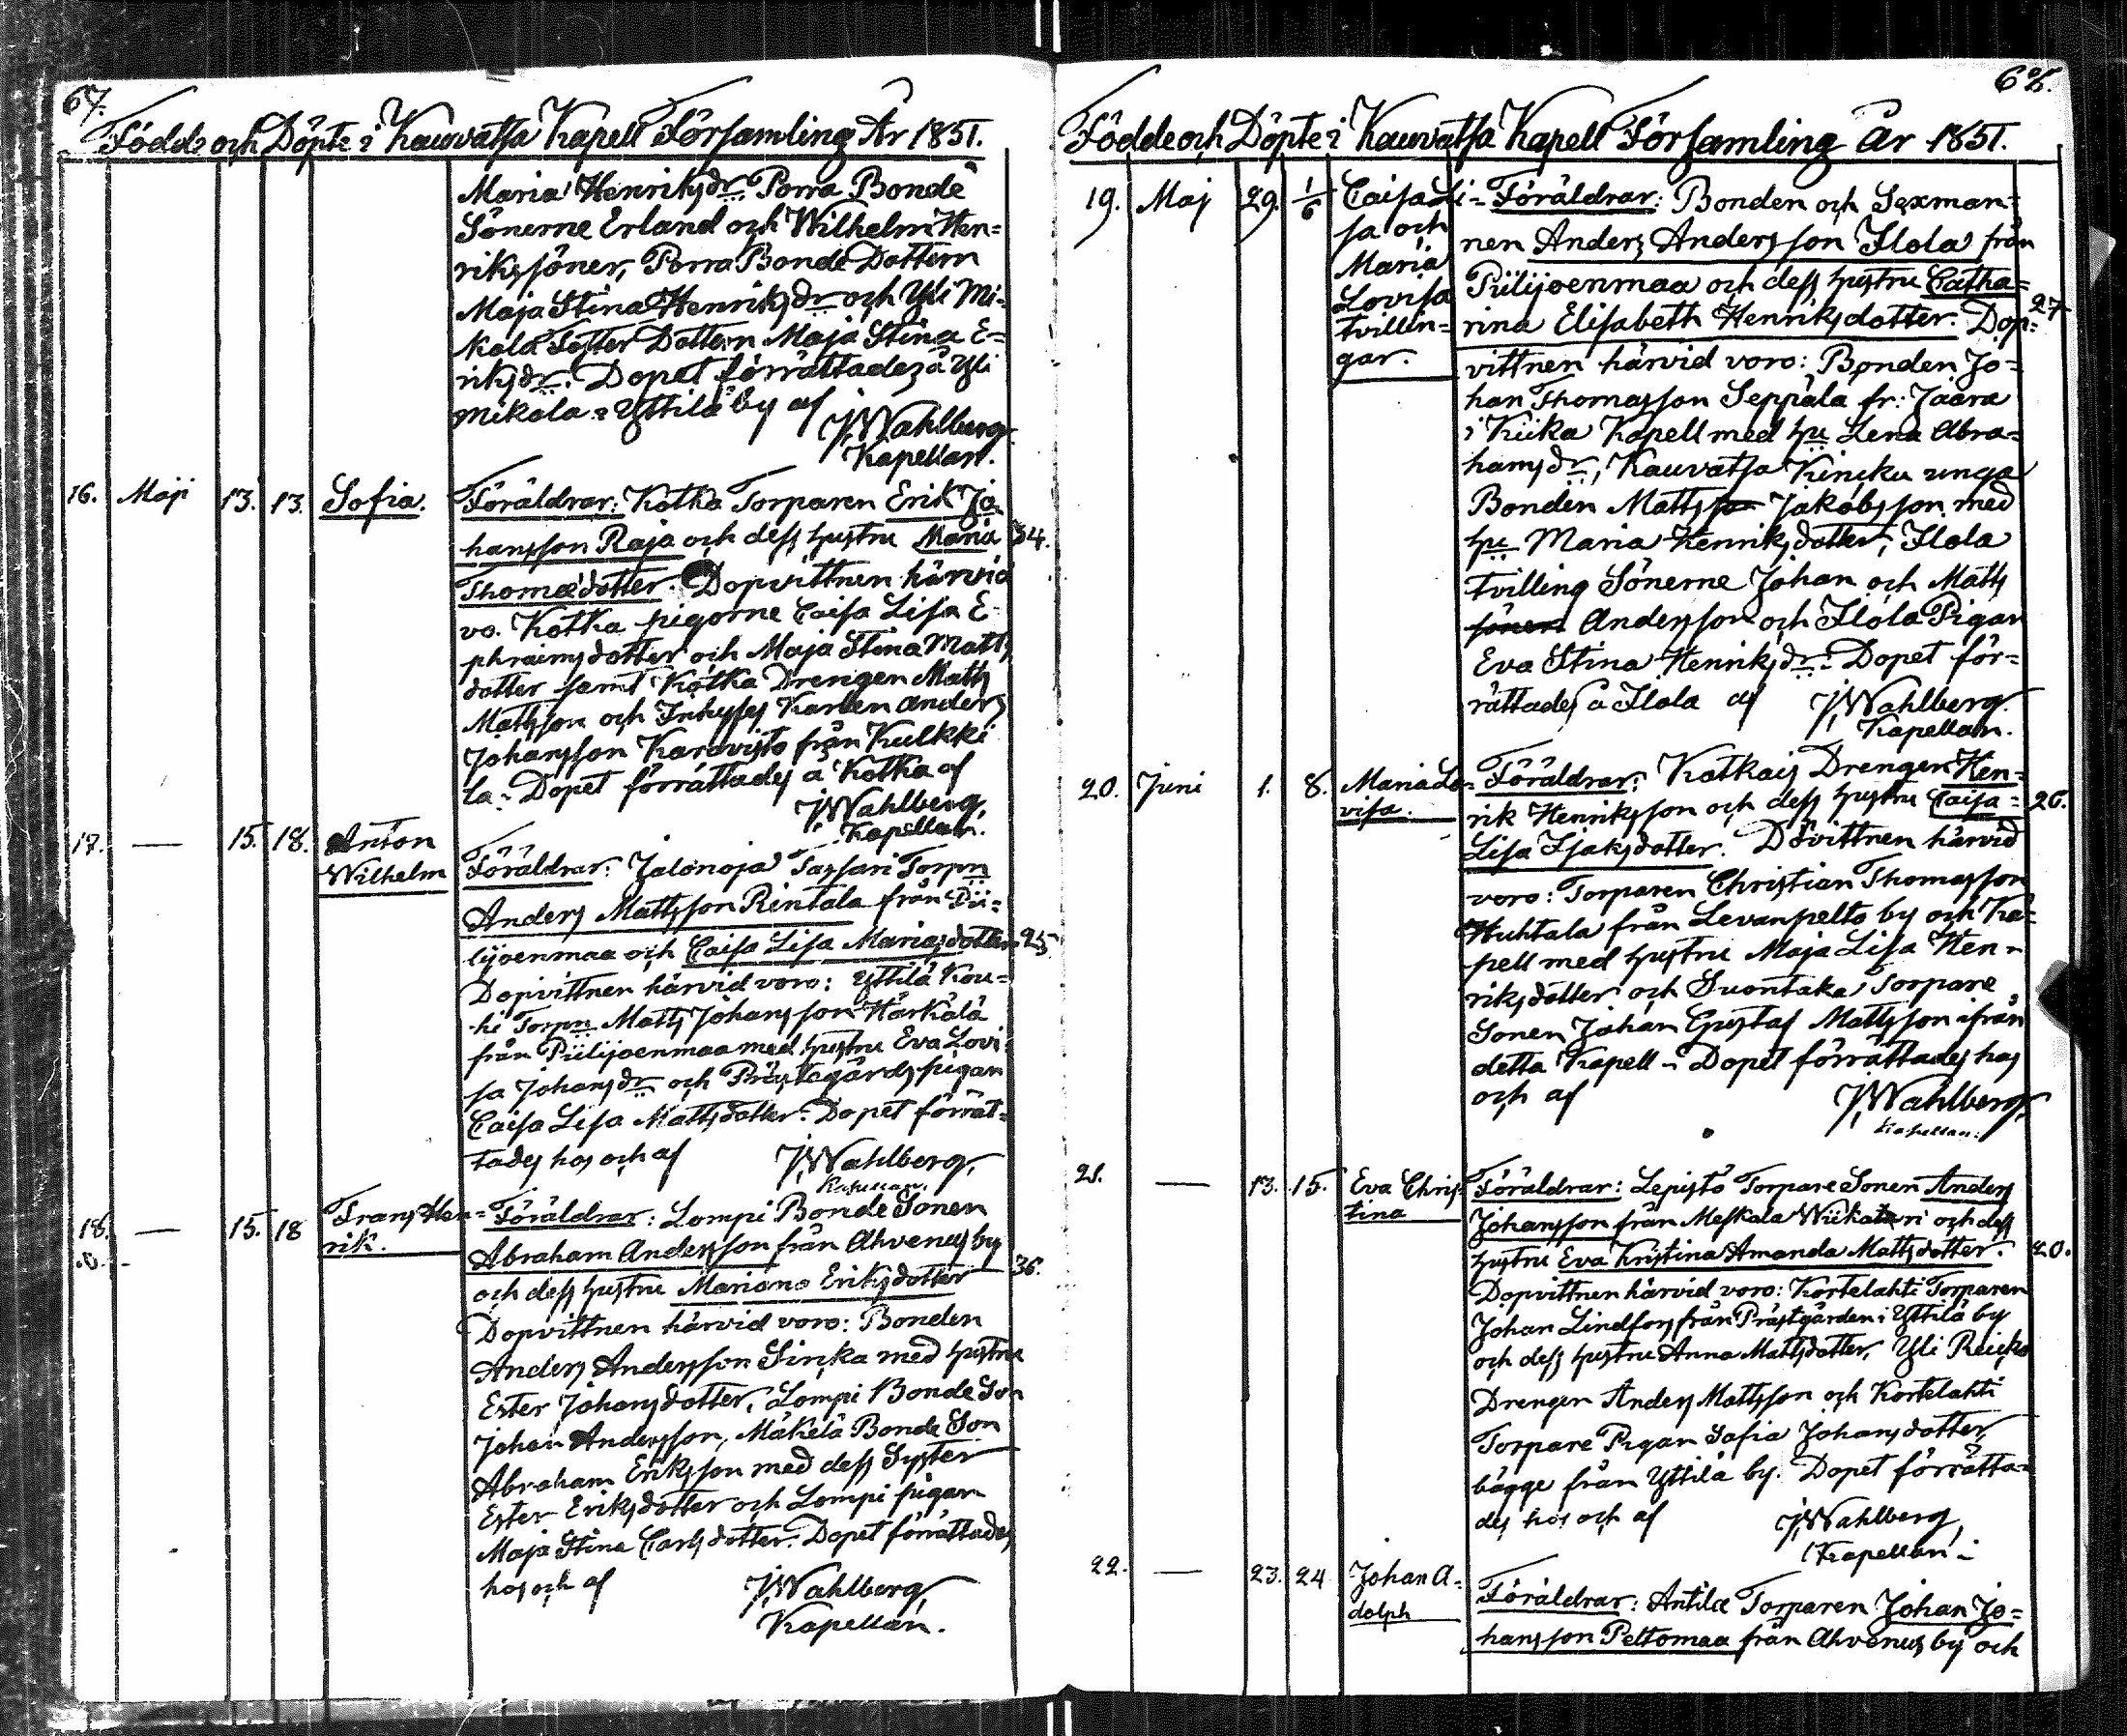 67.
Födde och Döpte i Kauvatsa Kapell Församling År 1851.
Maria Henriksdr Porra Bonde
Sönerne Erland och Wilhelm Hen=
rikssöner, Porra Bonde Dottern
Maja Stina Henriksdr och Yli Mi=
kola Dottern Maja Stina E=
riksdr. Dopet förrättades å Yli
Mikola i Yttilä by af
JWahlberg
Kapellan.
16. Maji 13. 13. Sofia. Föräldrar: Kotka Torparen Erik Jo
hansson Raja och dess hustru Maria 34.
Thomædotter. Dopvittnen härvid
vo. Kotka pigorne Caisa Lisa E-
phraimsdotter och Maja Stina Matts
dotter samt Kotka Drengen Matts
Mattsson och Inhyses Karlen Anders
Johansson Karavisto från Kulkki
la. Dopet förrättades å Kotka af
JWahlberg,
Kapellan.
17. — 15. 18. Anton
Wilhelm Föräldrar: Jalonoja Torpn
Anders Mattsson Rintala från Pii=
lijoenmaa och Caisa Lisa Mariasdotter 25
Dopvittnen härvid voro: Yttilä Kou=
hi Torpn Matts Johansson Härkälä
från Piilijoenmaa med hustru Eva Lovi
sa Johansdr och Prästegårdspigan
Caisa Lisa Mattsdotter. Dopet förrät=
tades hos och af JWahlberg,
Kapellan.
18. — 15. 18 Frans Hen= Föräldrar: Lompi Bonde Sonen
rik. Abraham Andersson från Ahvenus by 36.
och dess hustru Mariana Eriksdotter
Dopvittnen härvid voro: Bonden
Anders Andersson Sinkka med hustru
Ester Johansdotter, Lompi Bonde Son
Johan Andersson, Mäkelä Bonde Son
Abraham Eriksson med dess Syster
Ester Eriksdotter och Lompi pigan
Maja Stina Carlsdotter. Dopet förrättades
hos och af JWahlberg,
Kapellan.
68.
Födde och Döpte i Kauvatsa Kapell Församling År 1851.
19. Maj 29. 1/6 Caisa Li= Föräldrar: Bonden och Sexman=
sa och nen Anders Andersson Ilola från
Maria Piilijoenmaa och dess hustru Catha= 27
Lovisa rina Elisabeth Henriksdotter. Dop=
tvillin= vittnen härvid voro: Bonden Jo=
gar. han Thomasson Seppälä fr: Jaara
i Kiika Kapell med hu Lena Abra=
hamsdr, Kauvatsa unga
Bonden Matts Jakobsson med
hu Maria Henriksdotter, Ilola
tvilling Sönerne Johan och Matts
sönen Andersson och Ilola Pigan
Eva Stina Henriksdr. Dopet för=
rättades å Ilola af JWahlberg.
Kapellan.
20. Juni 1. 8. Maria Lo= Föräldrar: Drengen Hen=
visa. rik Henriksson och dess hustru Caisa= 26.
Lisa Isaksdotter. Dövittnen härvid
voro: Torparen Christian Thomasson
Huhtala från Levanpelto by och Ka=
pell med hustru Maja Lisa Hen=
riksdotter och Suontaka Torpare
Sonen Johan Gustaf Mattsson ifrån
detta Kapell. Dopet förrättades hos
och af JWahlberg,
Kapellan.
21. — 13. 15. Eva Chris= Föräldrar: Lepistö Torpare Sonen Anders
tina Johansson från Meskala Wiikatari och dess
hustru Eva Kristina Amanda Mattsdotter. 20.
Dopvittnen härvid voro: Kortelahti Torparen
Johan Lindfors från Prästgården i Yttilä by
och dess hustru Anna Mattsdotter, Yli
Drengen Anders Mattsson och Kortelahti
Torpare Pigan Sofia Johansdotter
bägge från Yttilä by. Dopet förrätta=
des hos och af JWahlberg,
Kapellan.
22. — 23. 24 Johan A=
dolph Föräldrar: Antila Torparen Johan Jo=
hansson Peltomaa från Ahvenus by och